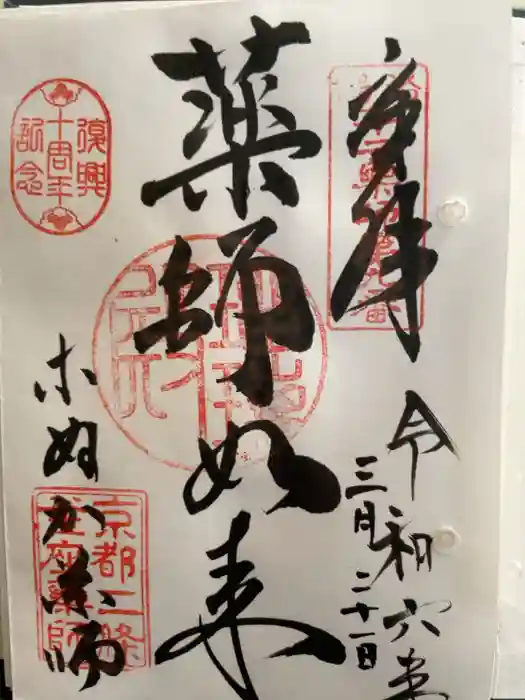 奉拝
令和六年
三月二十一日
薬師如来
こぬか薬師
復興
十周年
記念
京都二條
釜座薬師